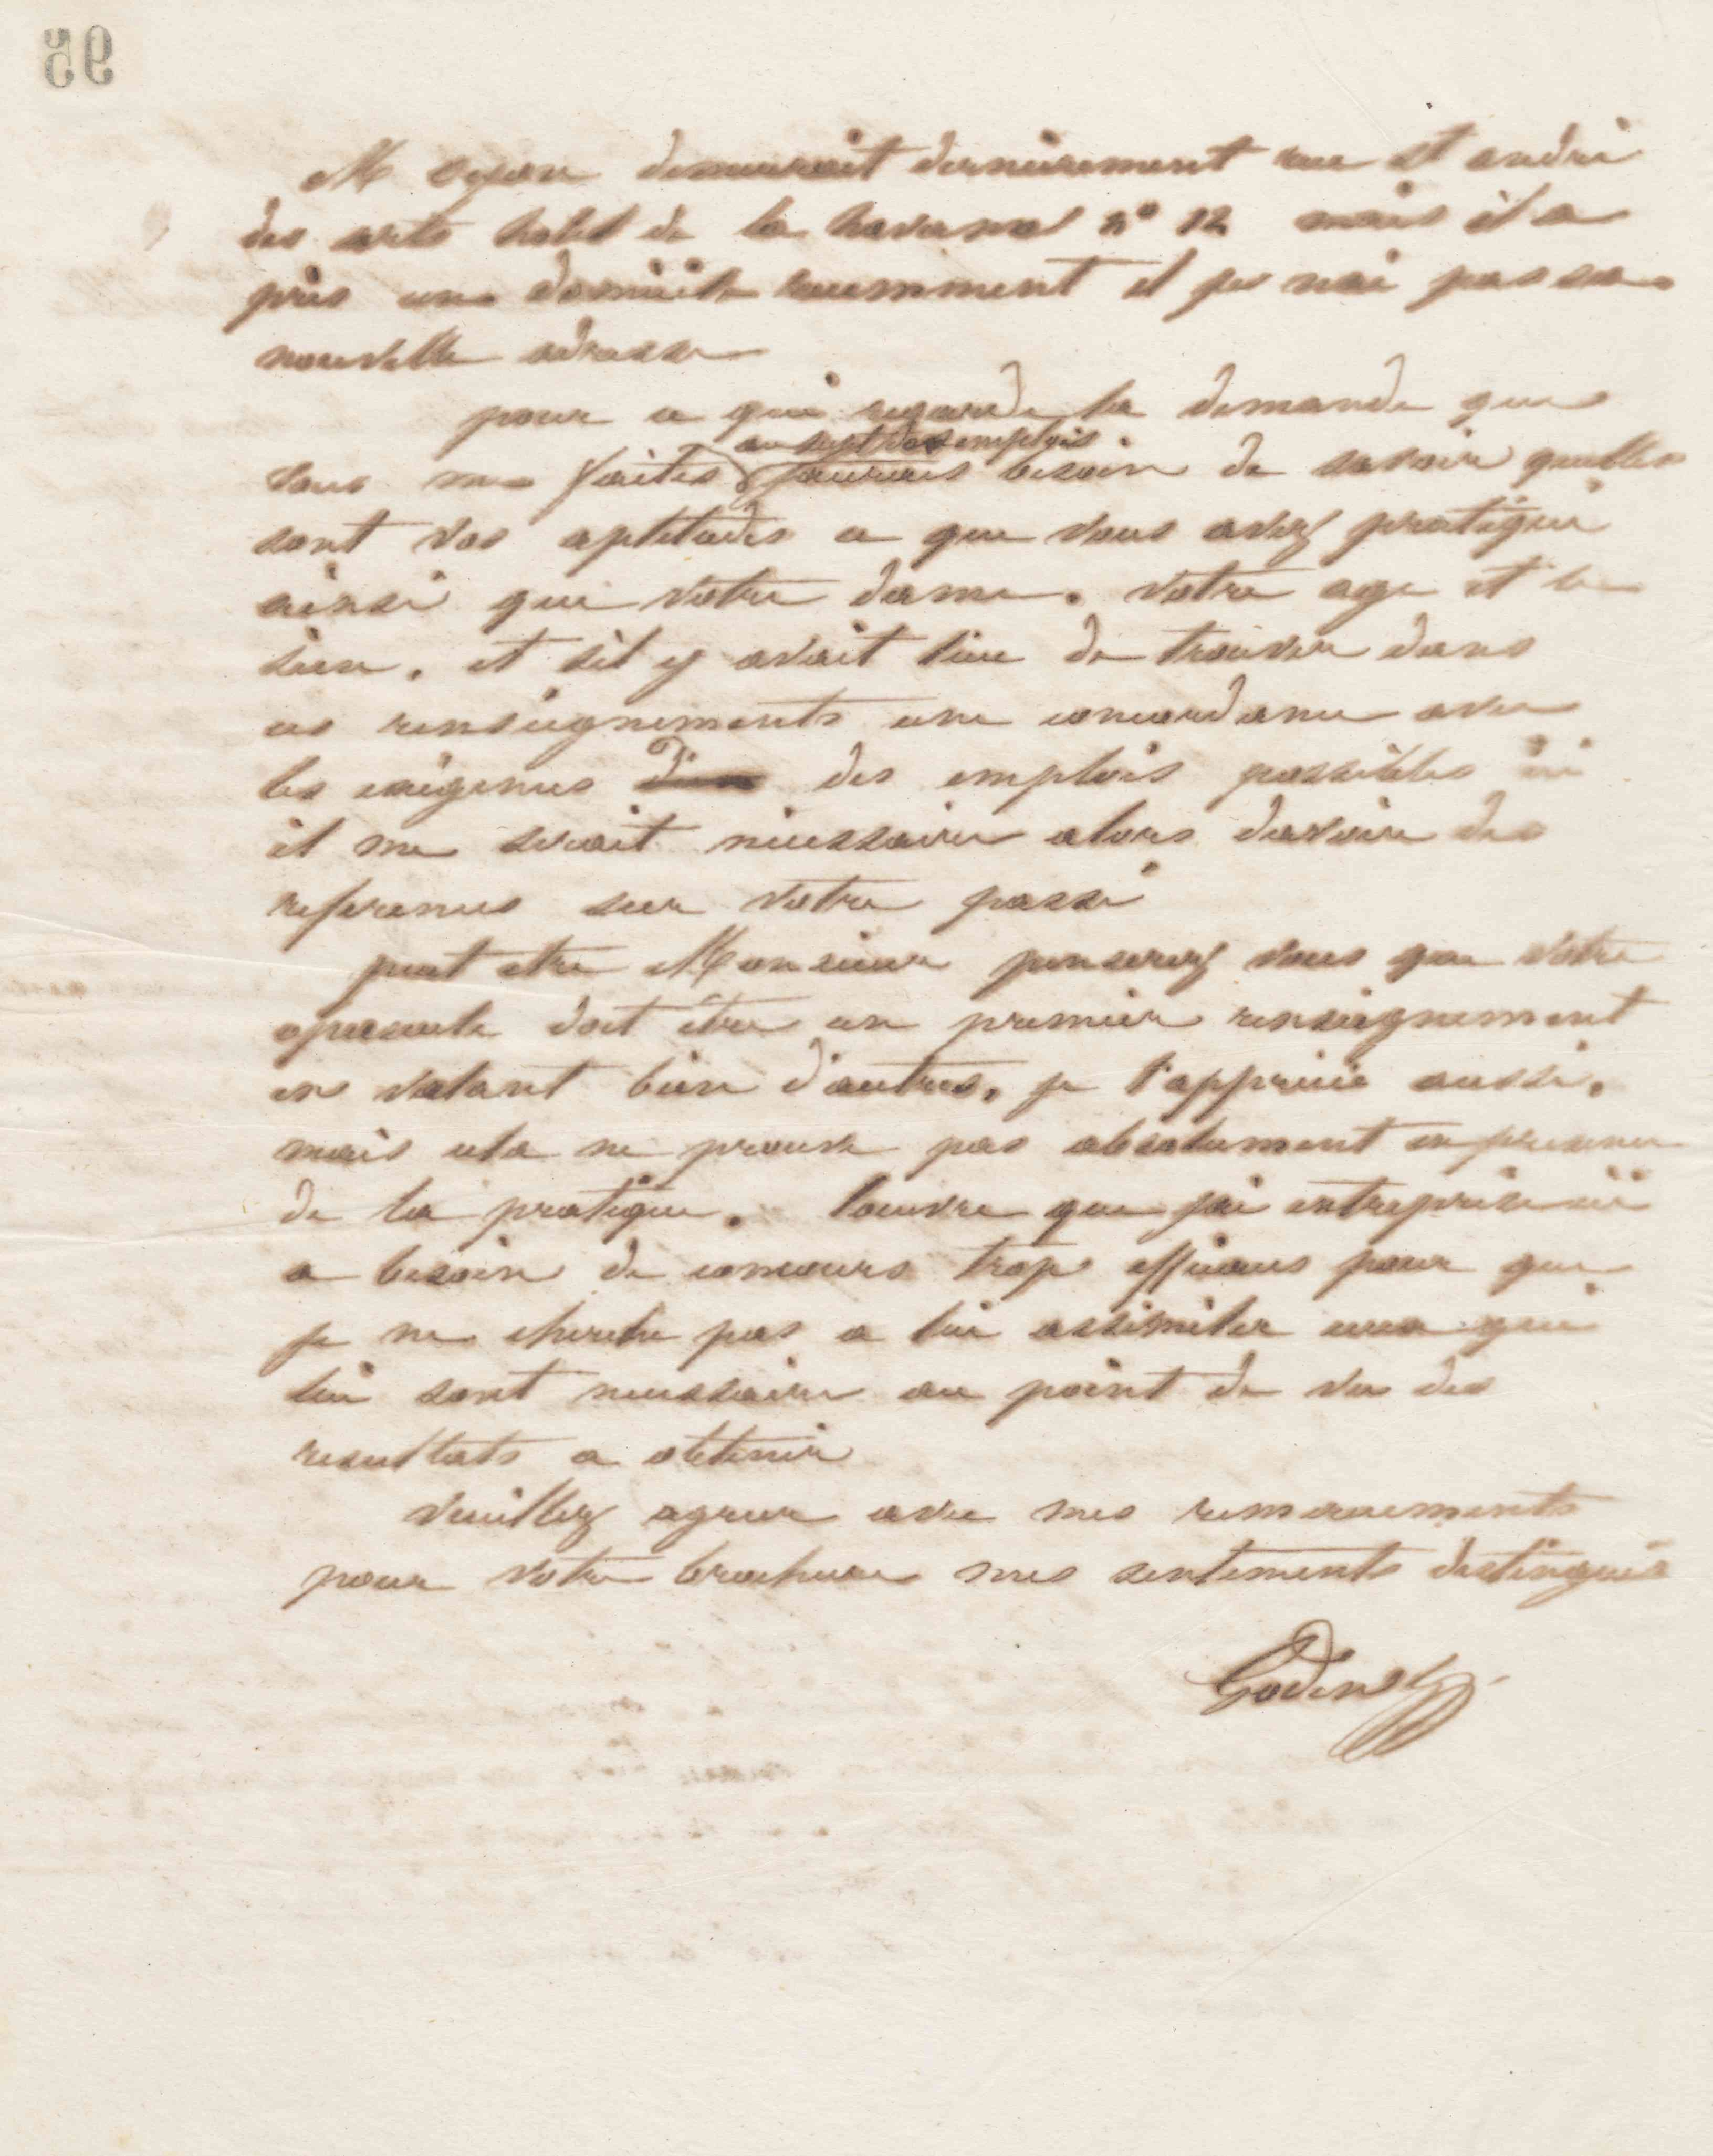 95
M Oyon demeurait dernièrement rue St andré
des arts hotel de la havane n° 12 mais il a
pris un domicile recemment et je nai pas sa
nouvelle adresse
pour ce qui regarde la demande que
au sujet des emplois
vous me faites jaurais besoin de savoir quelles
sont vos aptitudes ce que vous avez pratiqué
ainsi que votre dame. votre age et le
sien. et sil y avait lieu de trouver dans
ces renseignements une concordance avec
les exigences des emplois possibles ici
il me serait nécessaire alors davoir des
references sur votre passé
peut etre Monsieur penserez vous que votre
opuscule doit être un premier renseignement
en valant bien d'autres, je l'apprécie aussi,
mais cela ne prouve pas absolument en faveur
de la pratique. loeuvre que jai entreprise ici
a besoin de concours trop efficaces pour que
je ne cherche pas a lui assimiler ceux qui
lui sont necessaire au point de vue des
resultats a obtenir
Veuillez agreer avec mes remerciements
pour votre brochure mes sentiments distingués
Godin